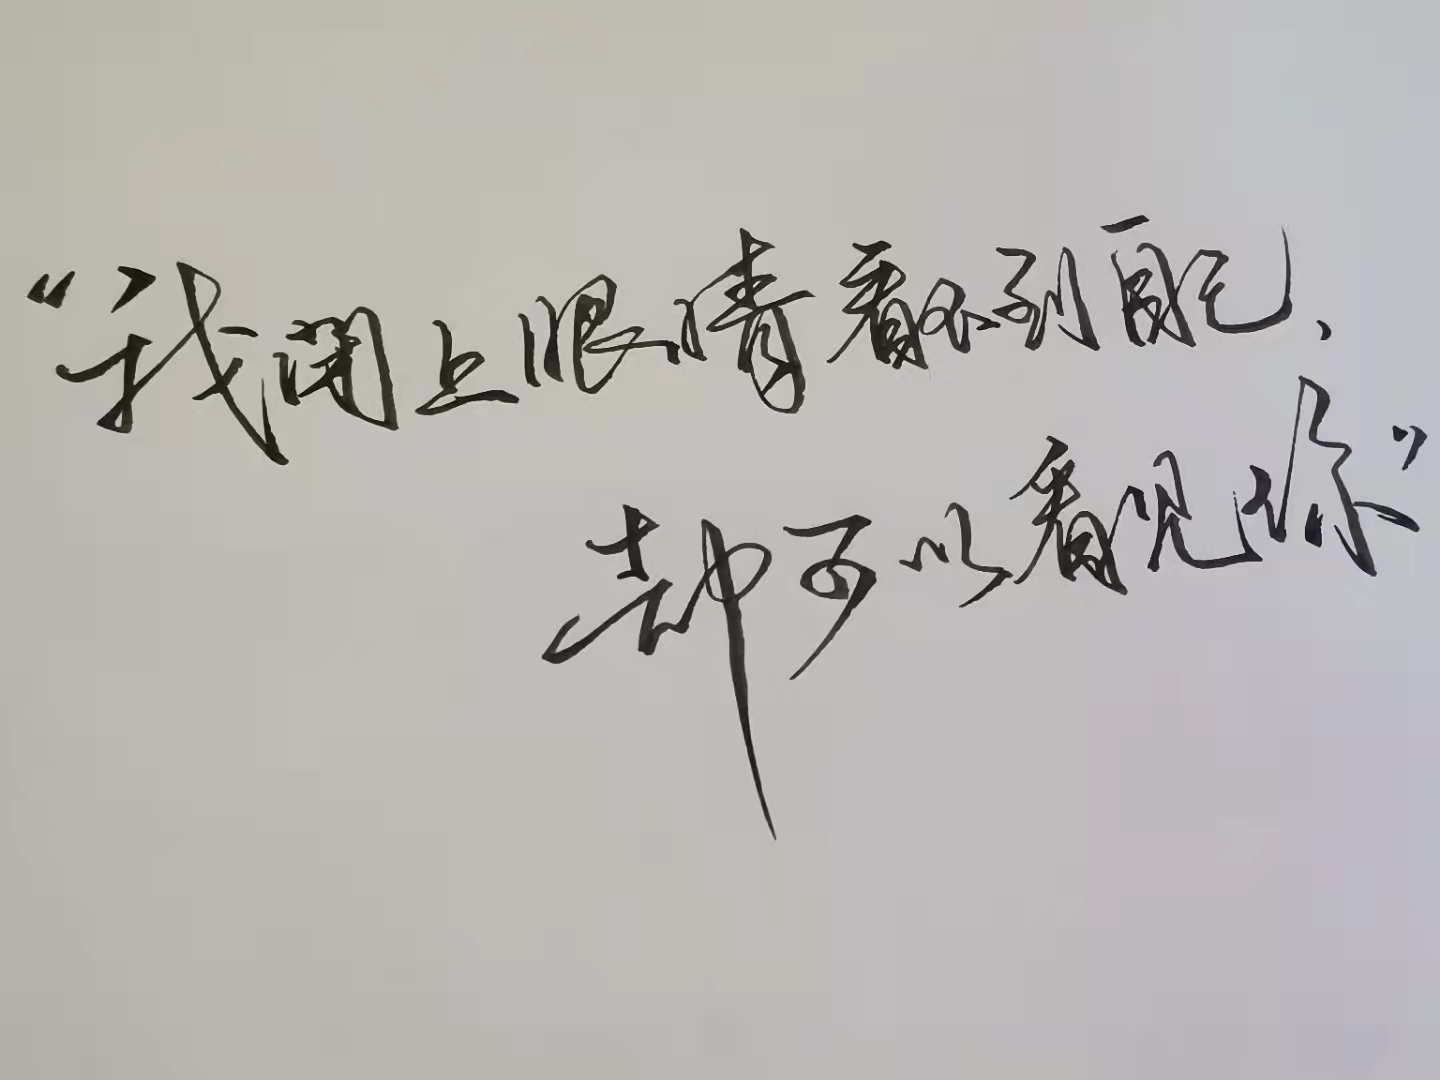 “我闭上眼睛看不到自己、
却可以看见你”